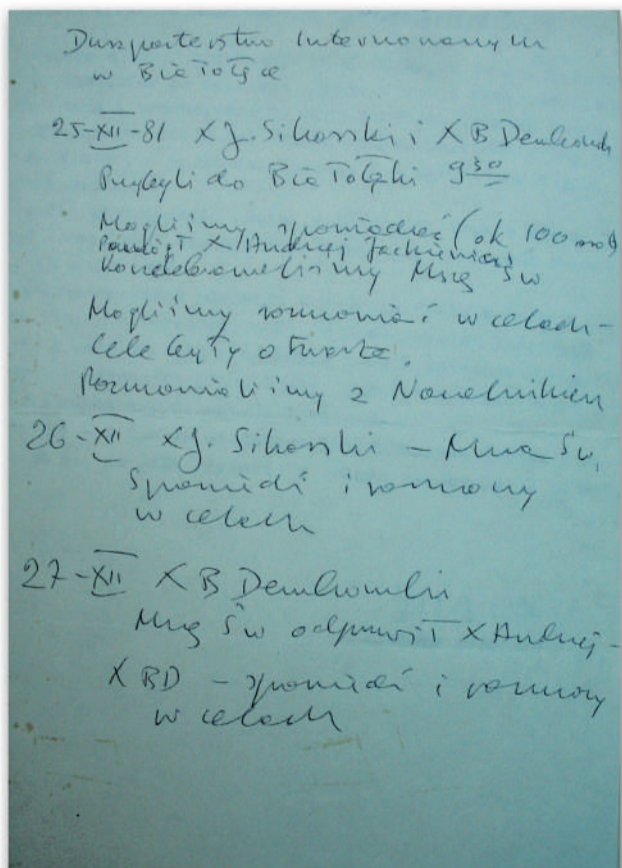 Duszpasterstwo Internowanych
w Białołęce
25-XII-81 X J. Sikorski i X B Dembowski
Przybyli do Białołęki 9 30
Mogliśmy spowiadać (ok 100 osób)
Pomógł X Andrzej
Koncelebrowaliśmy Mszę Św
Mogliśmy rozmawiać w celach -
Cele były otwarte.
Rozmawialiśmy z Naczelnikiem
26-XII X J. Sikorski - Msza Św,
Spowiedź i rozmowy
w celach
27-XII X B Dembowski
Mszę Św odprawił X Andrzej -
X BD - spowiedź i rozmowy
w celach